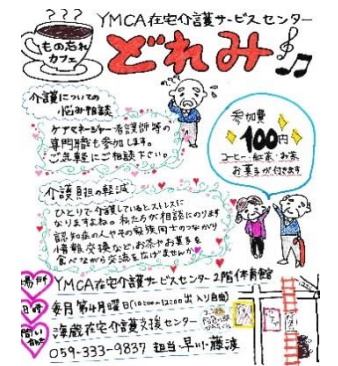 ???
もの忘れ
カフェ
YMCA在宅介護サービスセンター
どれみ
介護についての
悩み相談
ケアマネージャー・看護師等の
専門職も参加します。
ご気軽にご相談下さい。
参加費
100円
コーヒー・紅茶・お茶
お菓子が付きます
介護負担の軽減
ひとりで介護しているとストレスに
なりますよね。私たちが相談にのります
認知症の人やその家族同士のつながり
情報交換など、お茶やお菓子を
食べながら交流をなげませんか
場所
YMCA在宅介護サービスセンター2階体育館
日時
毎月第4月曜日(10:00~12:00出入り自由)
問い
海蔵在宅介護支援センター
059-333-9837 担当 早川・藤波